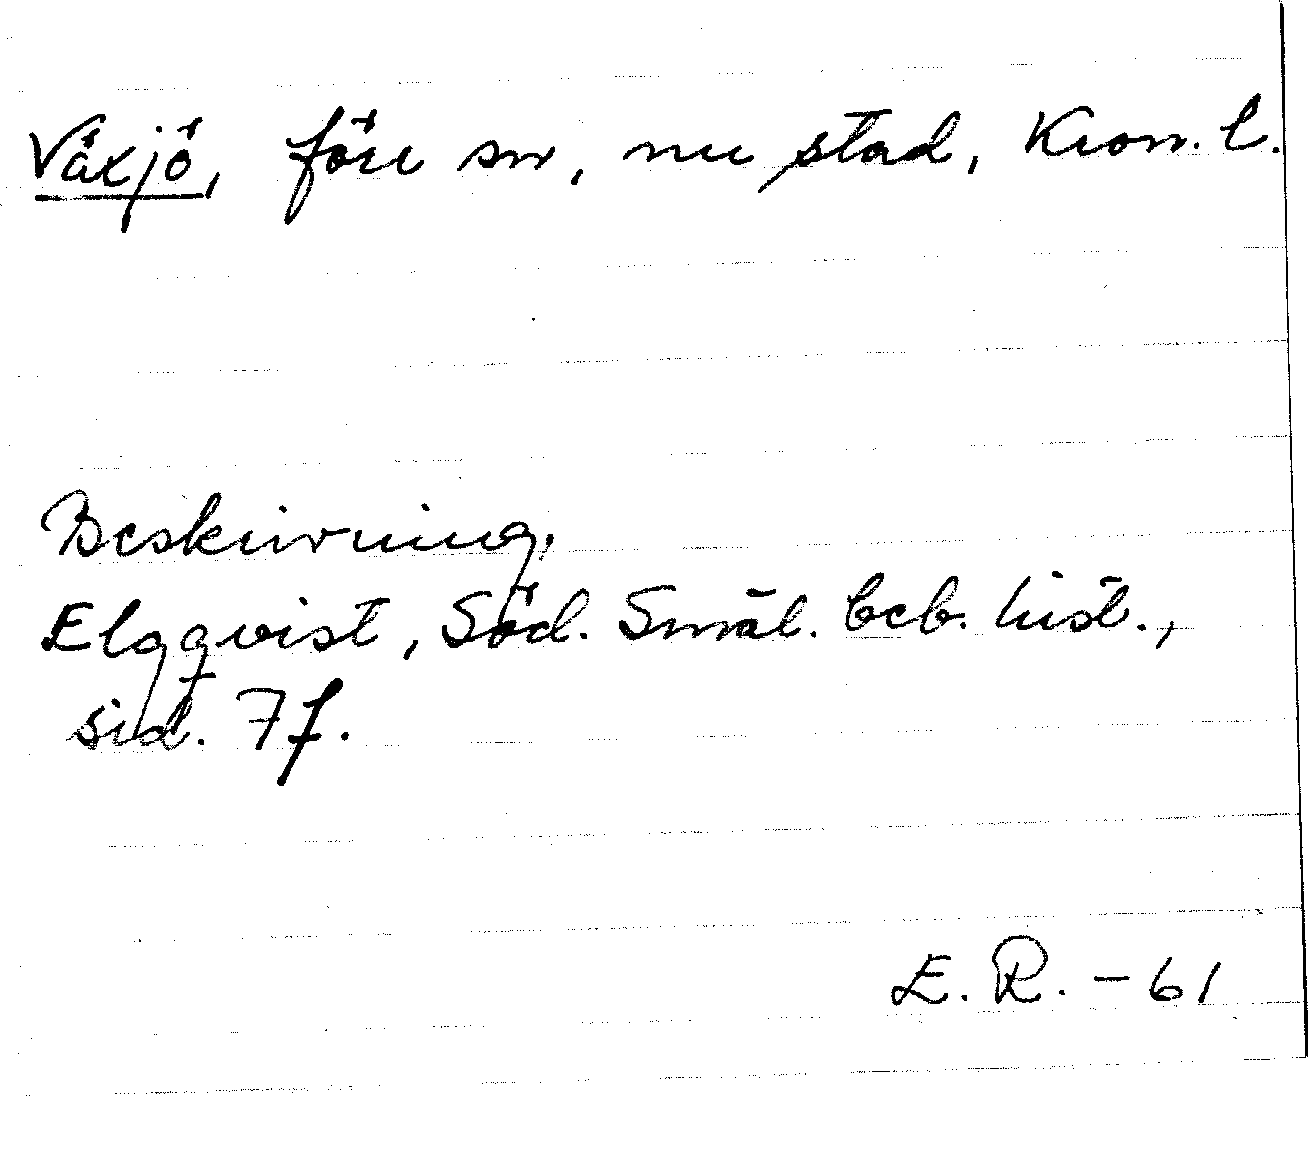 Växjö, förr sn, nu stad, Kron. l.
Beskrivning,
Elgqvist, Söd. Smål. beb. hist.,
sid. 7 f.
E. R. - 61